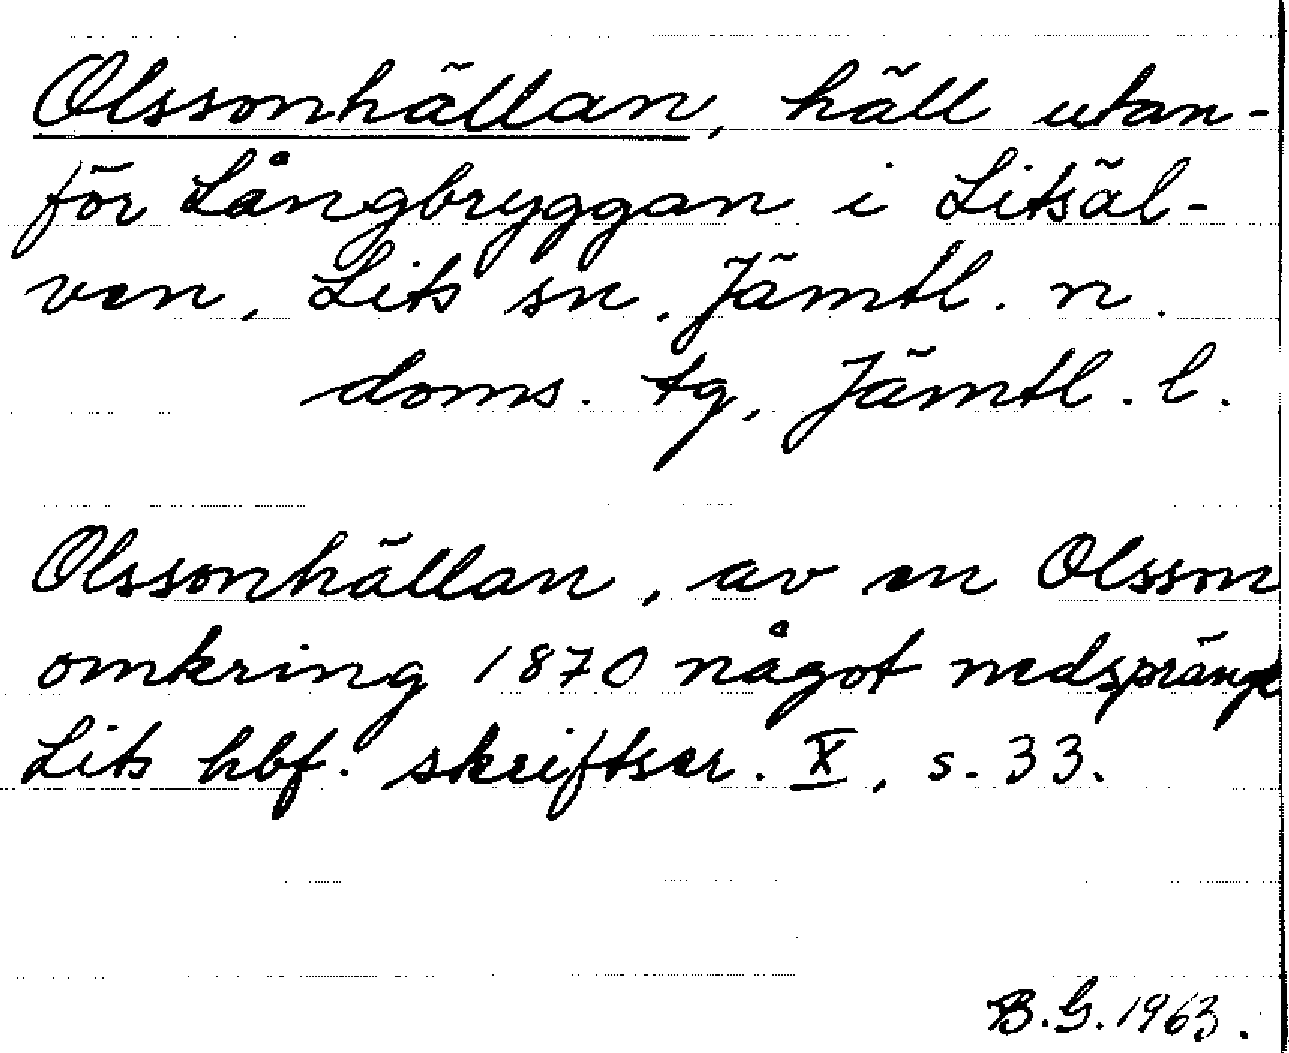 Olssonhällan, häll utan-
för Långbryggan i Litsäl-
ven, Lits sn. Jämtl. n.
doms. tg, Jämtl. l.
Olssonhällan, av en Olsson
omkring 1870 något nedsprängd
Lits hbf. skriftser. X, s. 33.
B.G. 1963.